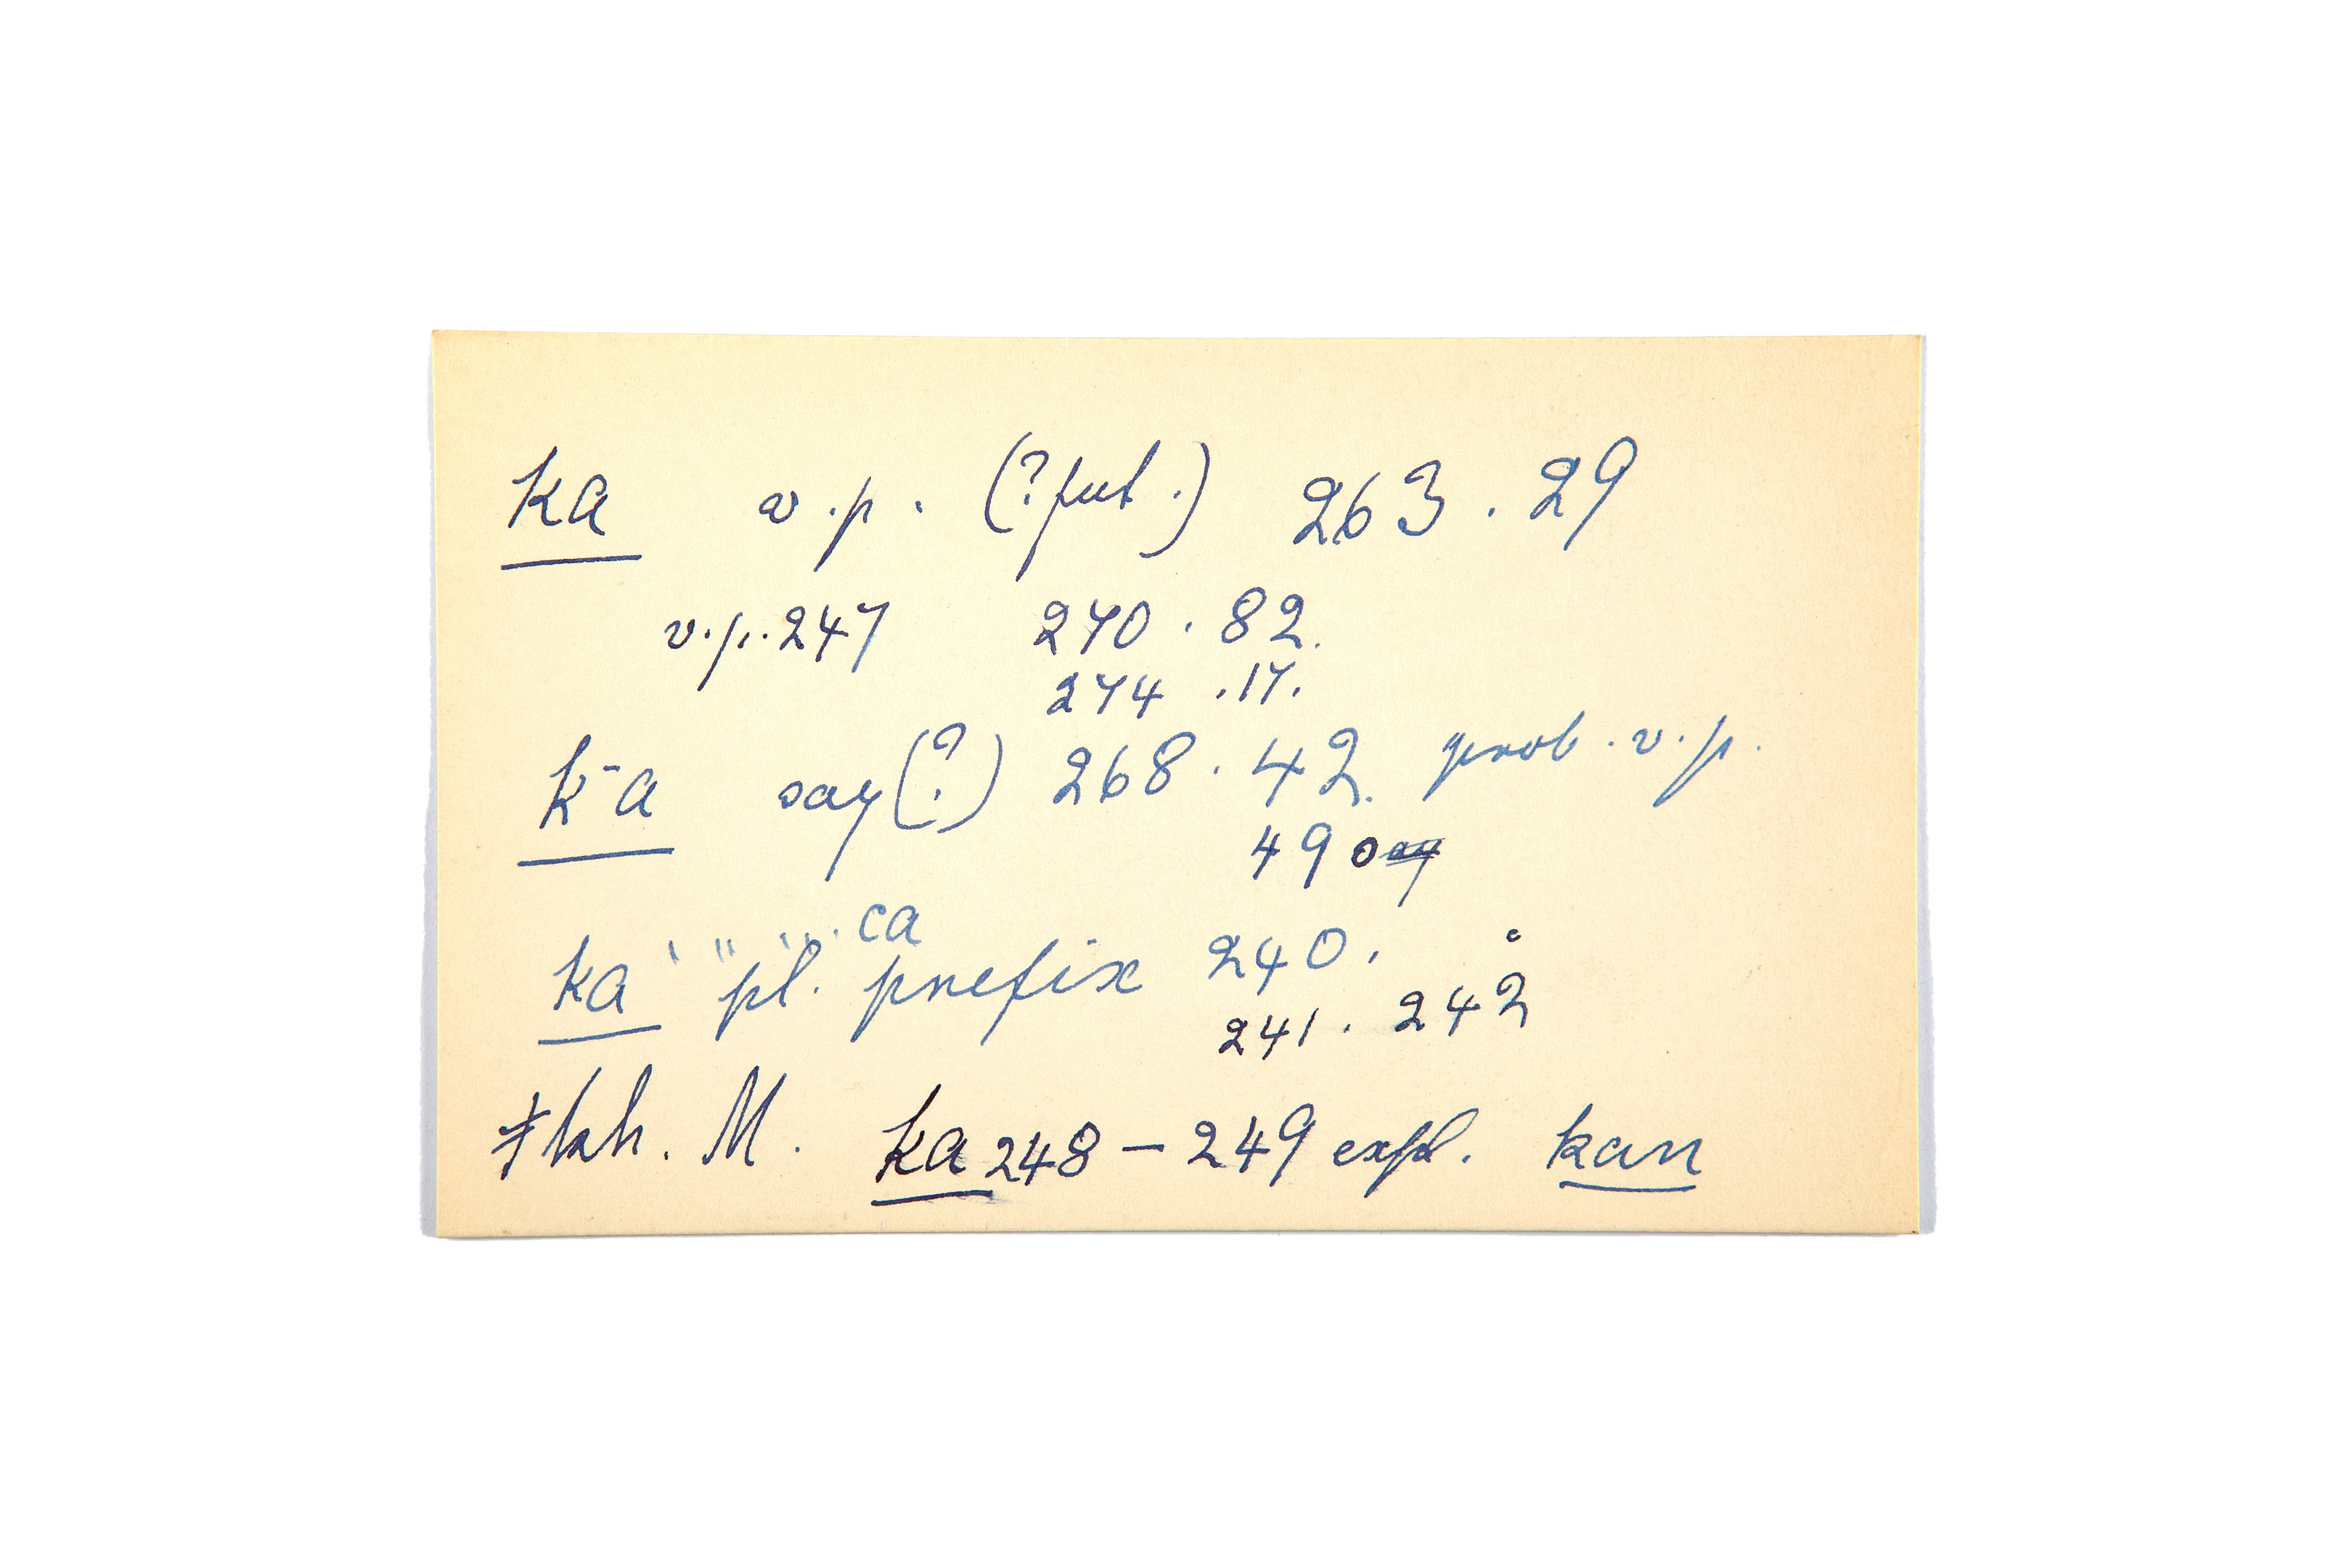 ka v.p. (? fut.) 263.29
v.p. 247 270.82.
274.17.
k-a say (?) 268.42. prob. v.p.
49
ca
ka pl. prefix 240.
241. 242
≠kh. M. ka 248 – 249 expl. kan